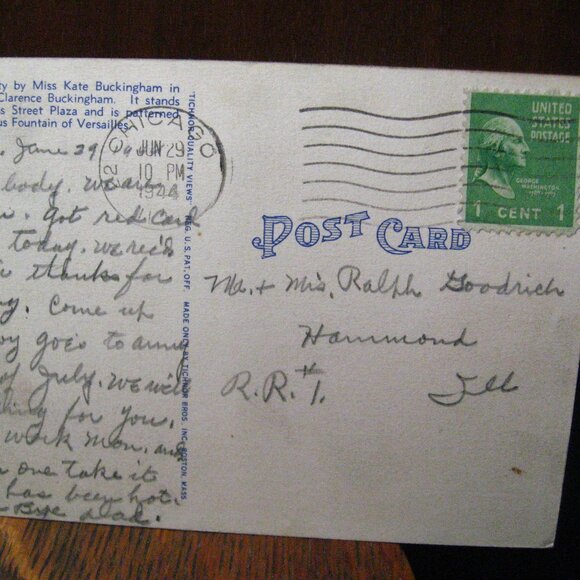 ty by Miss Kate Buckingham in
Clarence Buckingham. It stands
s Street Plaza and is patterned
us Fountain of Versailles.
June 29
body. we are
Got red card
today. we rec'd
thanks for
Come up
goes to army
of July. we will
for you.
work mon. and
one take it
has been hot.
Bye dad.
TICHNOR QUALITY VIEWS REG. U.S. PAT. OFF. MADE ONLY BY TICHNOR BROS. INC. BOSTON MASS
CHICAGO
JUN 29
10 PM
1944
UNITED
STATES
POSTAGE
GEORGE
WASHINGTON
1 CENT 1
POST CARD
Mr. + Mrs. Ralph Goodrich
Hammond
R.R.#1. Ill